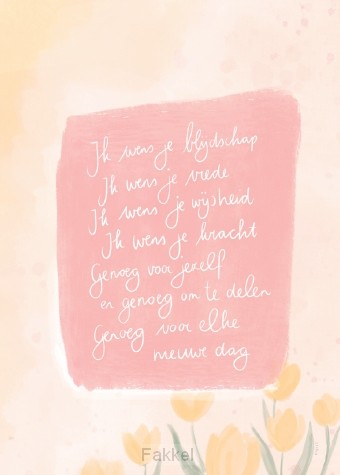 Ik wens je blijdschap
Ik wens je vrede
Ik wens je wijsheid
Ik wens je kracht
Genoeg voor jezelf
en genoeg om te delen
Genoeg voor elke
nieuwe dag
Fakkel